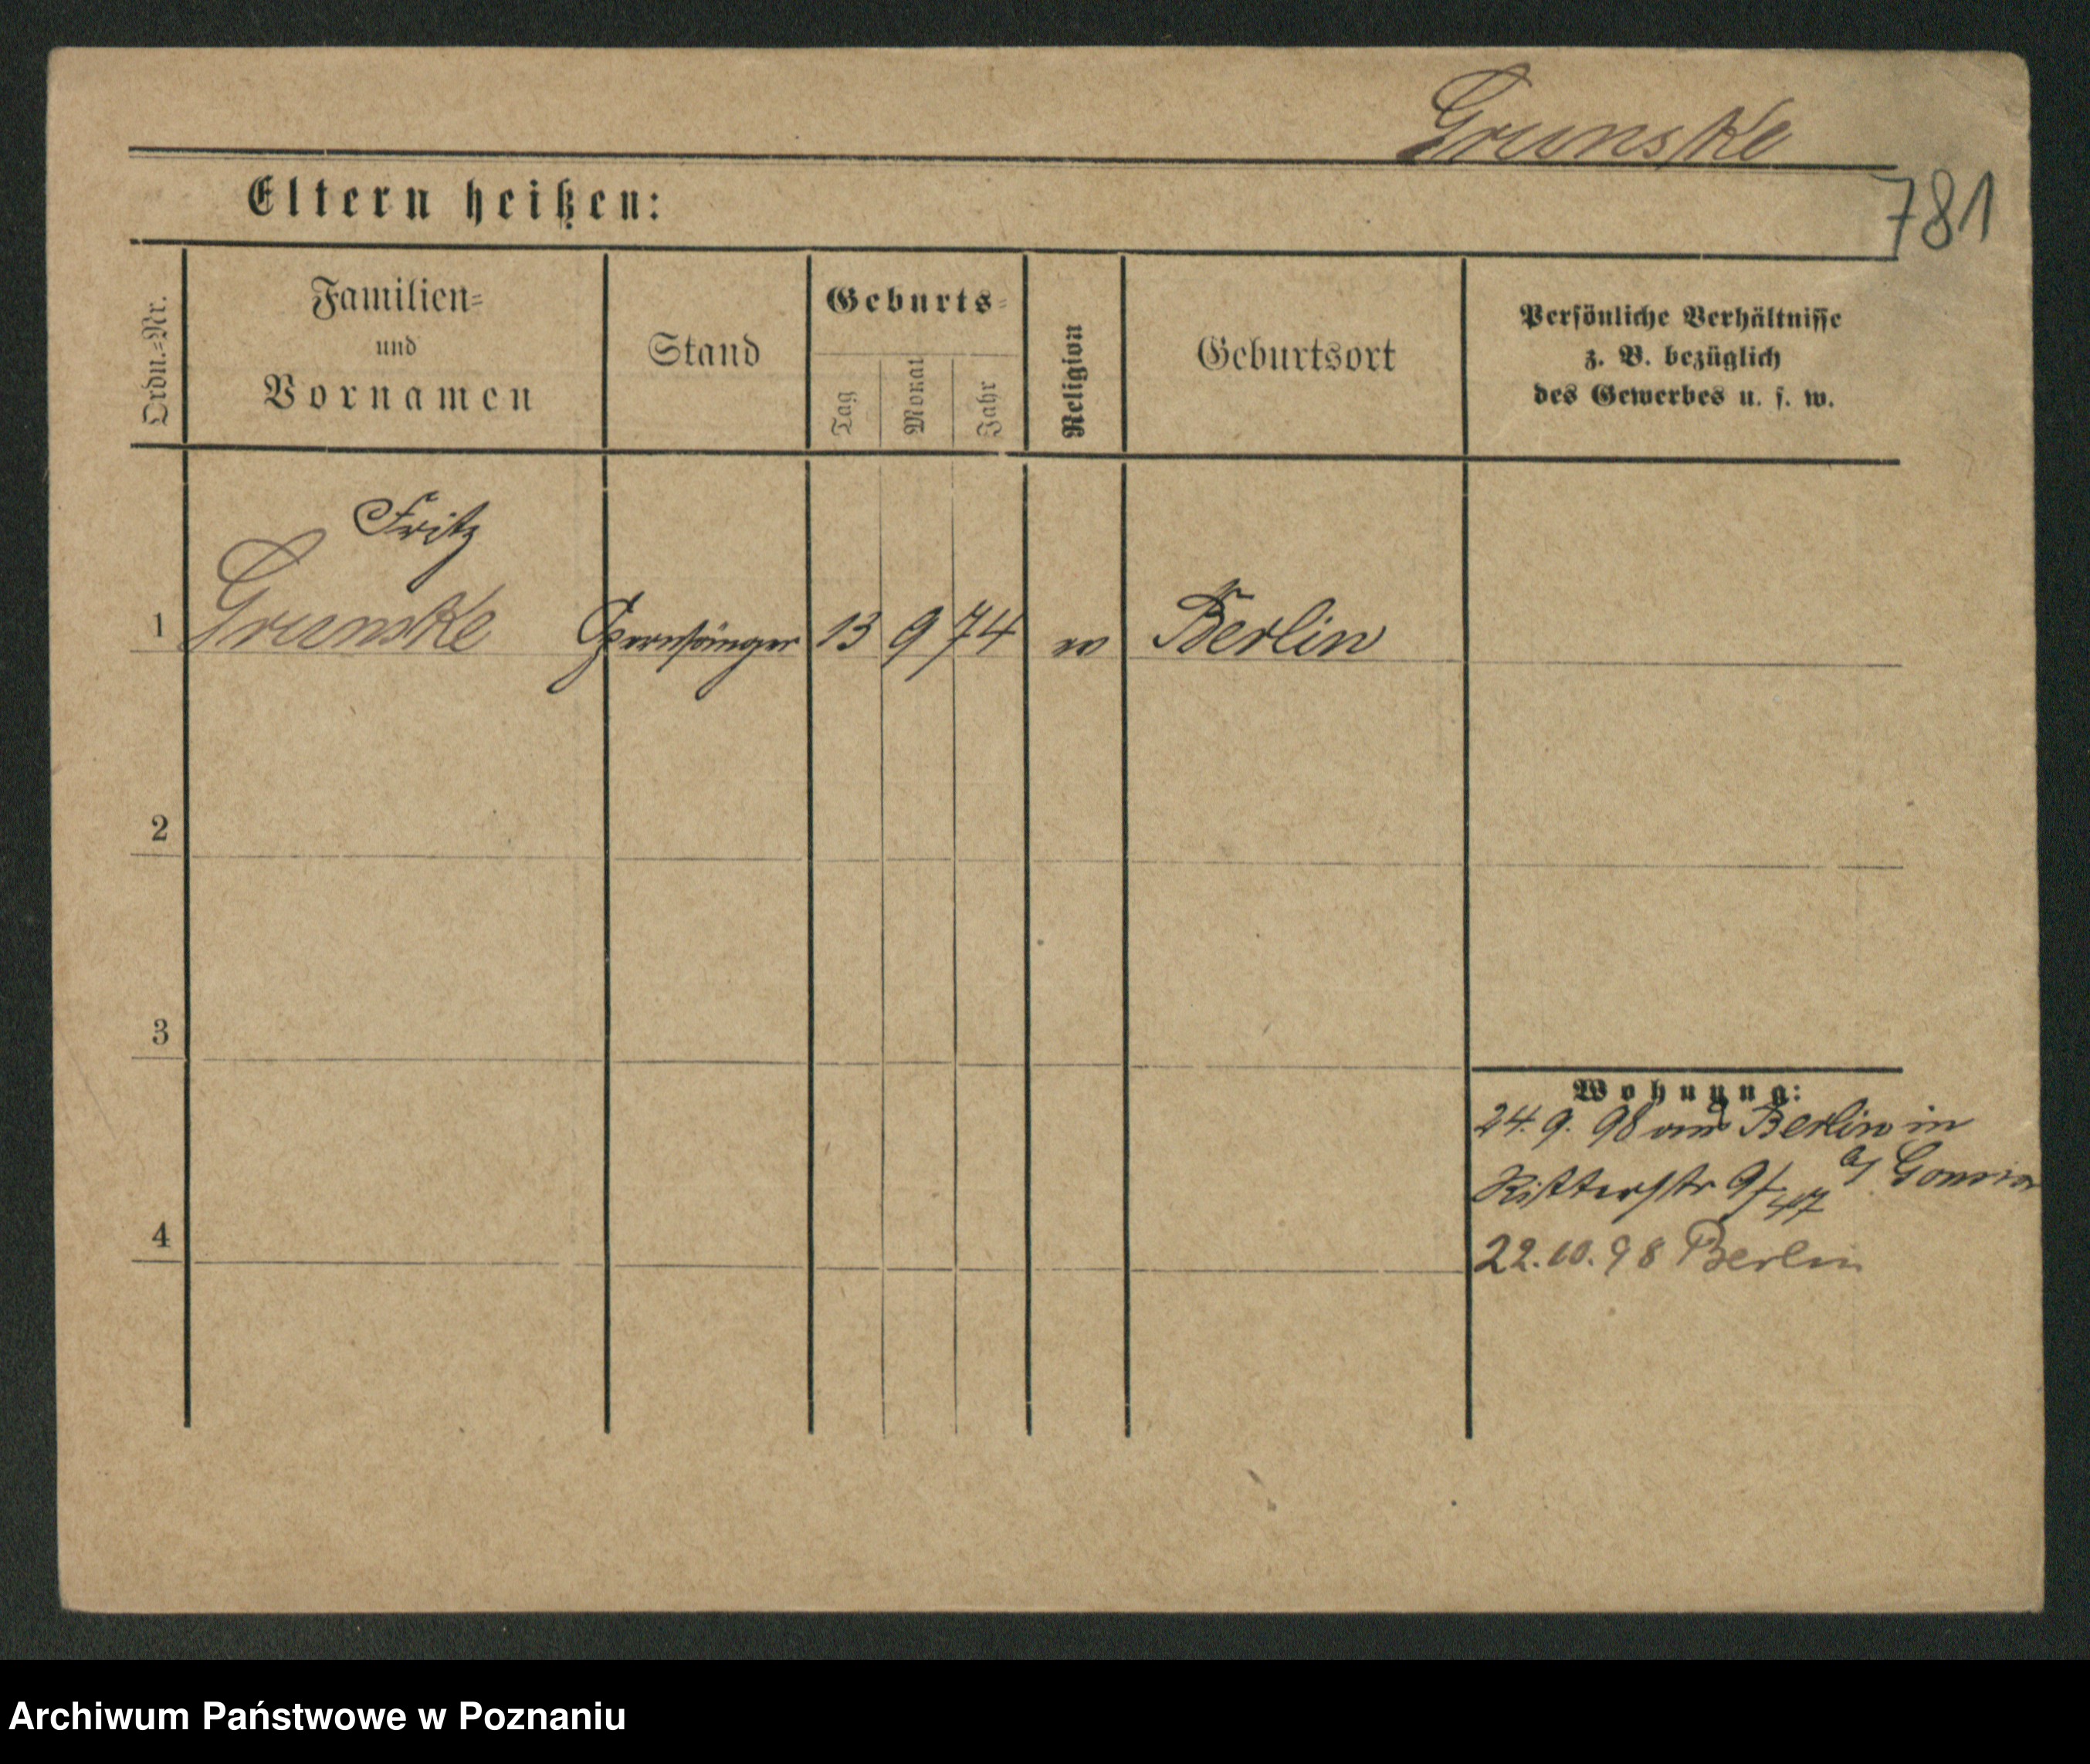 Grunske
781
Eltern heißen:
Ordn.-Nr.
Familien-
und
Vornamen
Stand
Geburts-
Tag
Monat
Jahr
Religion
Geburtsort
Persönliche Verhältnisse
z. B. bezüglich
des Gewerbes u. s. w.
Fritz
1 Grunske Opernsänger 13 9 74 Berlin
2
3
4
Wohnung:
24. 9. 98 aus Berlin in
Ritterstr 9/
22.10.98 Berlin
Archiwum Państwowe w Poznaniu